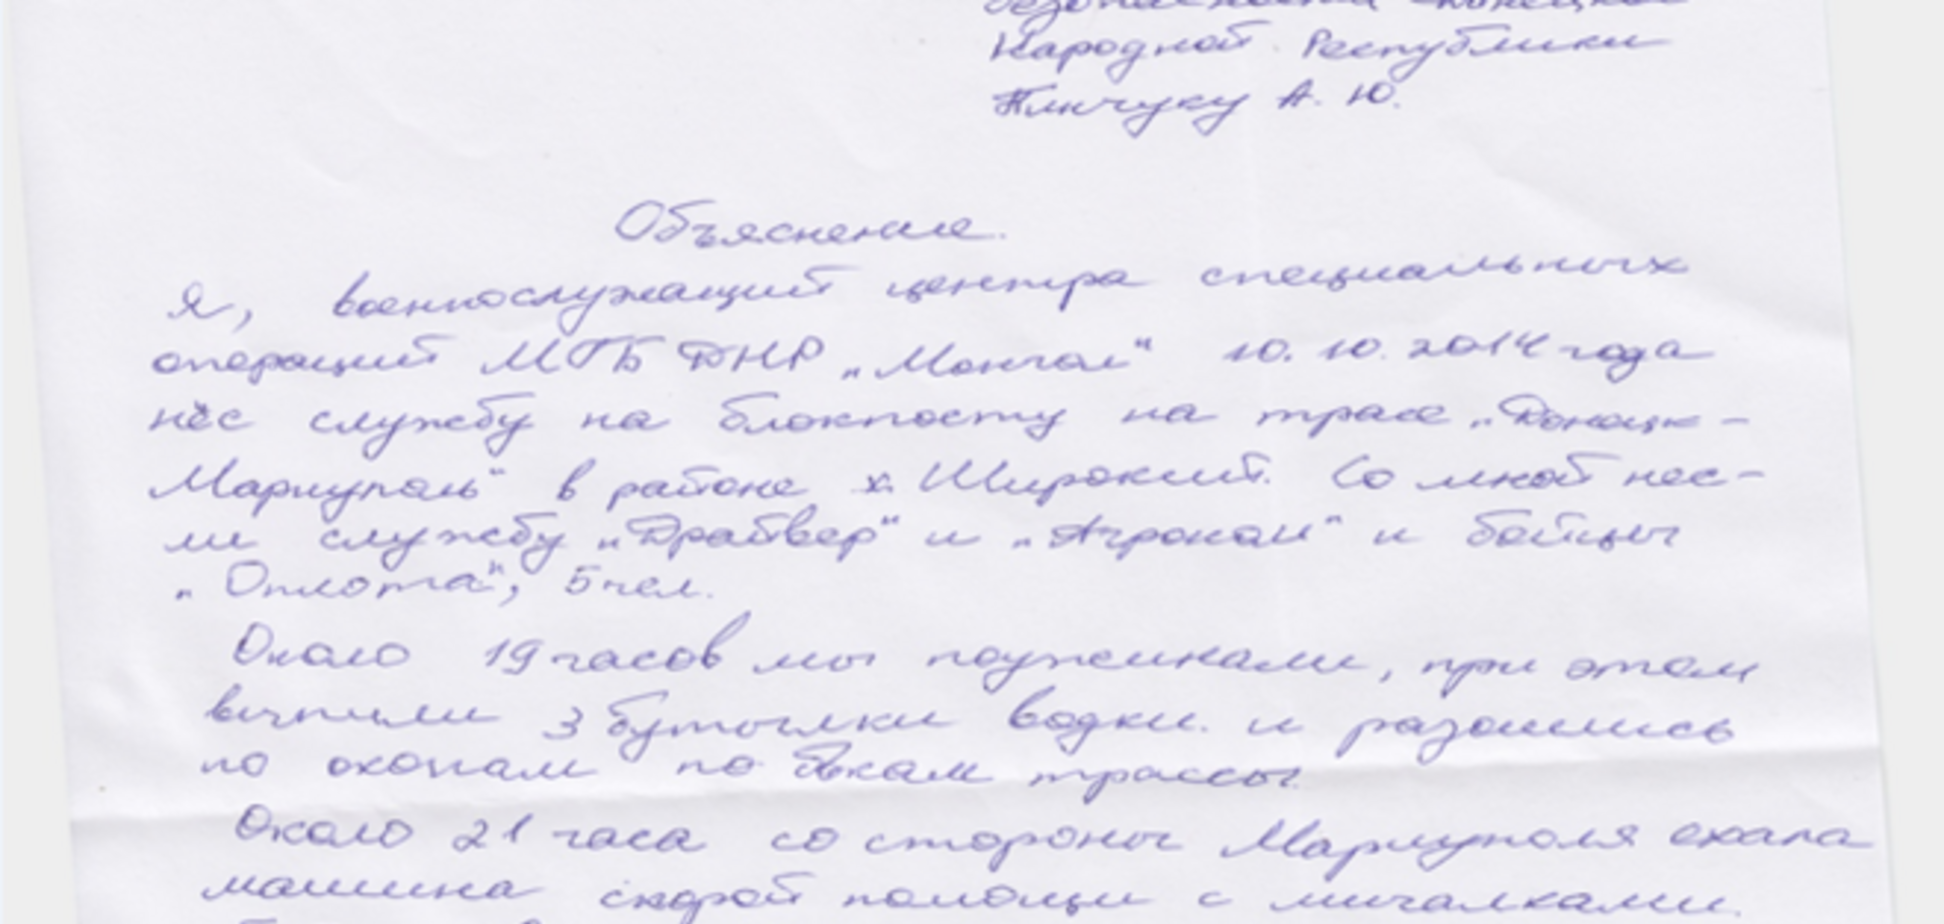 безопасности Донецкой
Народной Республики
Пинчуку А. Ю.
Объяснение.
Я, военнослужащий центра специальных
операций МГБ ДНР „Монгол“ 10.10.2014 года
нёс службу на блокпосту на трассе „Донецк-
Мариуполь“ в районе х. Широкий. Со мной нес-
ли службу „Драйвер“ и „Агроном“ и бойцы
„Оплота“, 5 чел.
Около 19 часов мы поужинали, при этом
выпили 3 бутылки водки. и разошлись
по окопам по бокам трассы.
Около 21 часа со стороны Мариуполя ехала
машина скорой помощи с мигалками.